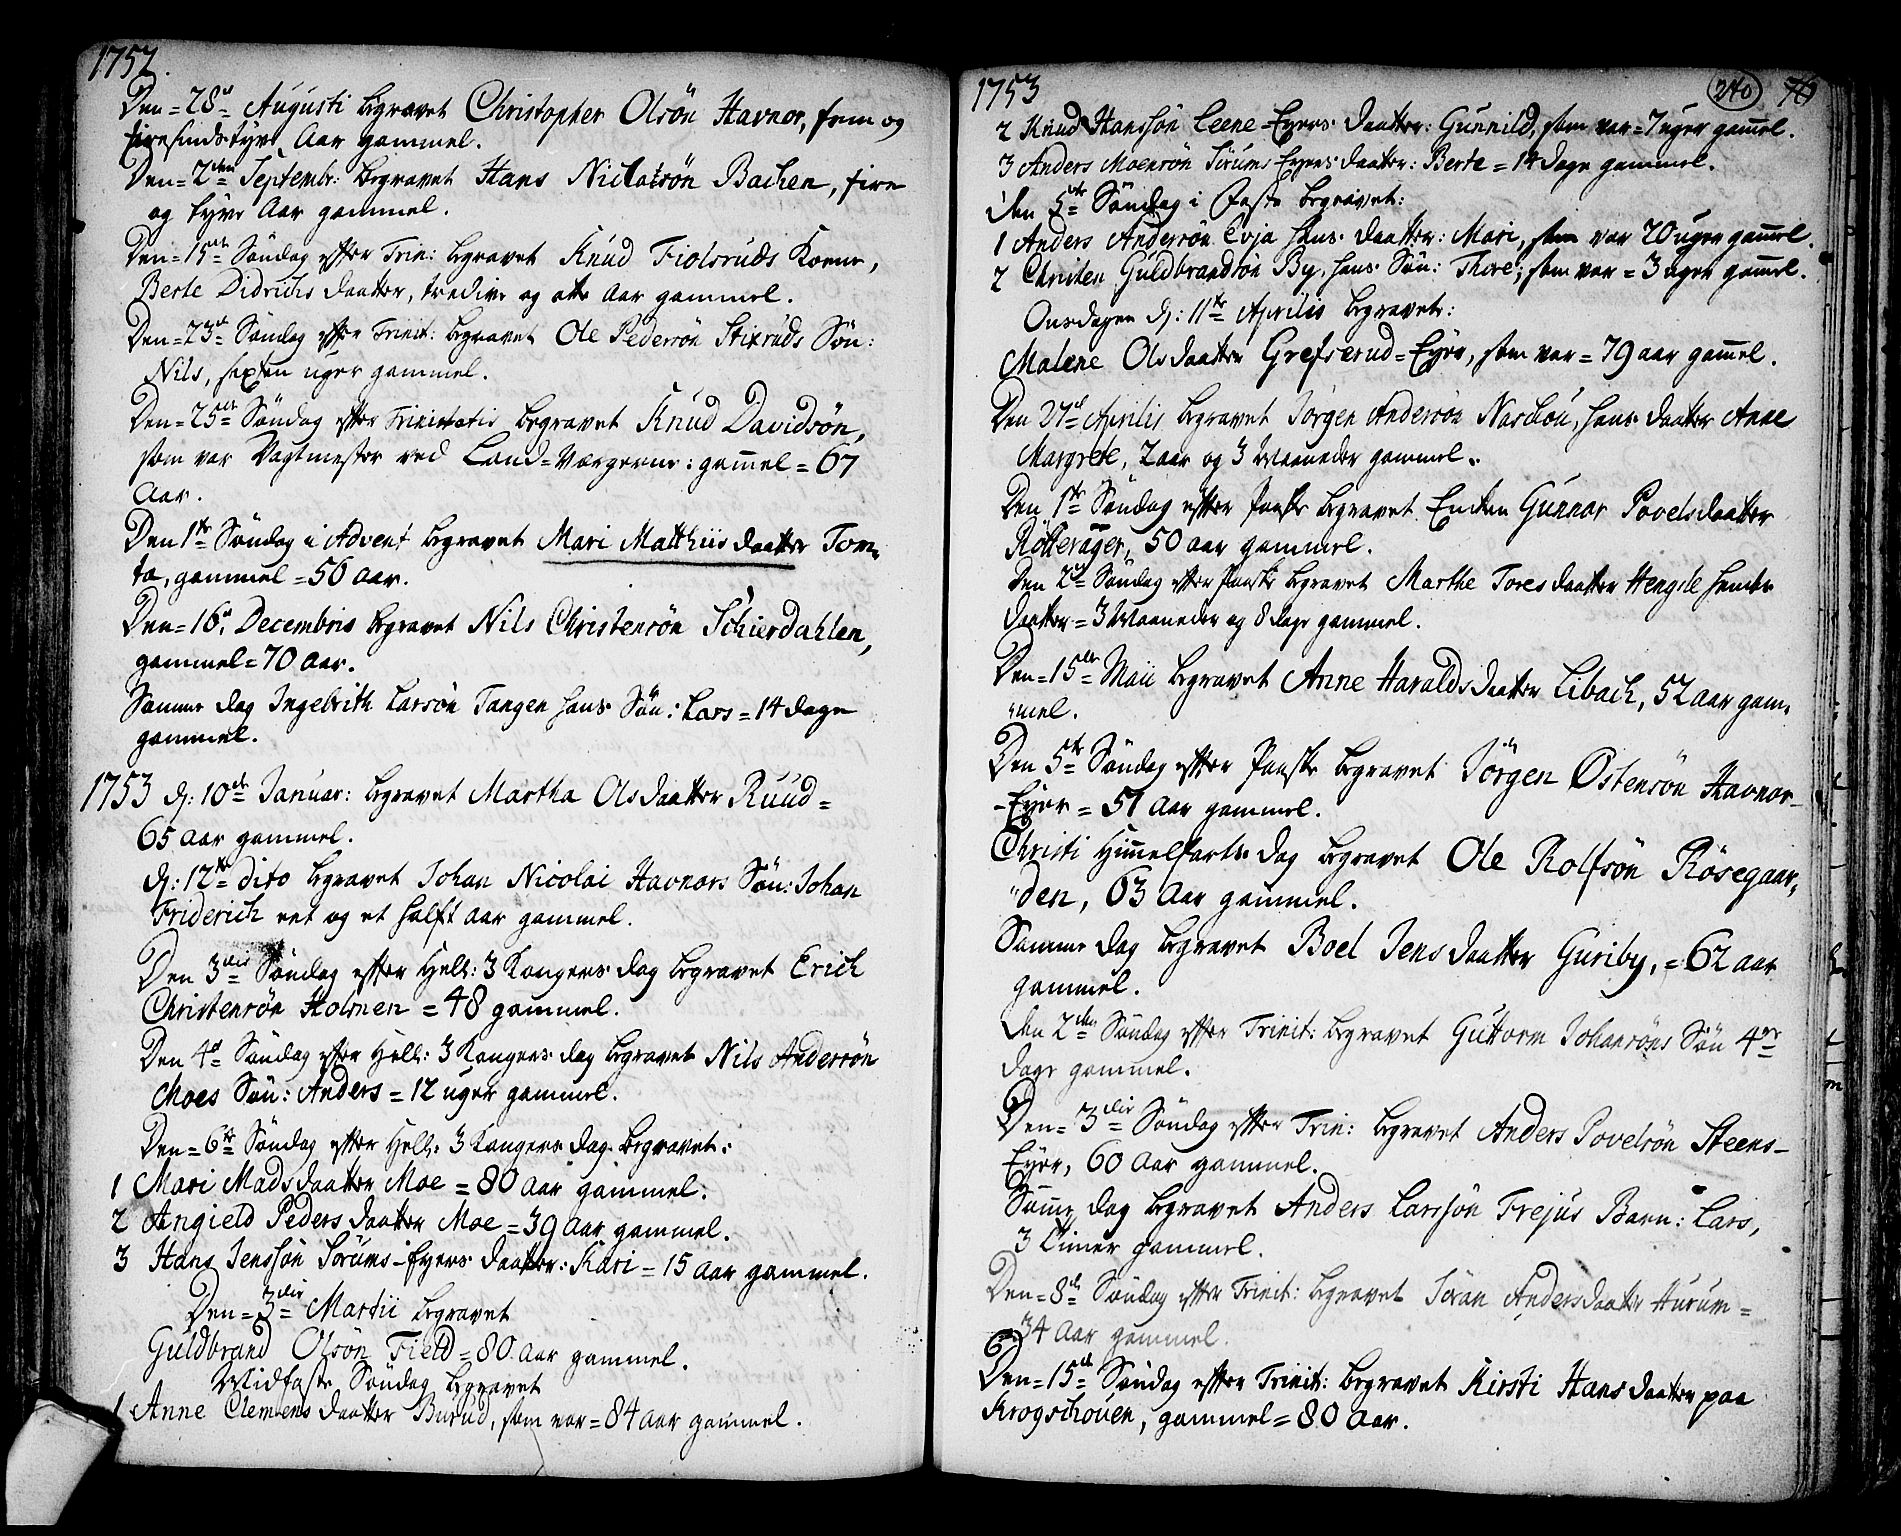 1752.
Den = 28de Augusti begravet Christopher Olsön Havnor, fem og
firesindstyve Aar gammel.
Den = 2den Septembr: begravet Hans Niclasön Bachen, fire
og tyve Aar gammel.
Den = 15de Söndag efter Trin: begravet Knud Fiolsruds Kone,
Berte Didrichs daatter, tredive og otte Aar gammel.
Den = 23de Söndag efter Trinit: begravet Ole Pedersön Stixruds Sön:
Nils, sexten uger gammel.
Den = 25de Söndag efter Trinitatis begravet Knud Davidsön,
som var Vagtmester ved Land-Værgerne: gam̅el = 67
Aar.
Den 1ste Söndag i Advent begravet Mari Matthiis daatter Tom-
ta, gammel = 56 Aar.
Den = 16de Decembris begravet Nils Christensön Schierdahlen,
gammel = 70 Aar.
Samme dag Ingebrith Larsön Tangen hans Sön: Lars = 14 dage
gammel.
1753 d: 10de Januar: begravet Martha Olsdaatter Ruud =
65 Aar gammel.
d: 12te dito begravet Johan Nicolai Havnors Sön: Johan
Friderich eet og et halft aar gammel.
Den 3die Söndag efter Hell: 3 Kongers dag begravet Erich
Christensön Holmen = 48 gammel.
Den 4de Söndag efter Hell: 3 Kongers dag begravet Nils Andersön
Moes Sön: Anders = 12 uger gammel.
Den = 6te Söndag efter Hell: 3 Kongers dag begravet:
1 Mari Madsdaatter Moe = 80 Aar gammel.
2 Angield Peders daatter Moe = 39 Aar gammel.
3 Hans Jenssön Sorums-Eyers daatter: Kari = 15 Aar gammel.
Den = 3die Martii begravet
Guldbrand Olsön Field = 80 Aar gammel.
Midfaste Söndag begravet
1 Anne Clemens daatter Burud, som var = 84 Aar gammel.
1753
240
2 Knud Hanssön Leene-Eyers daatter: Gunnild, som var = 7 uger gam̅el.
3 Anders Moensön Sorums Eyers daatter: Berte = 14 dage gammel.
den 5te Söndag i Faste begravet:
1 Anders Andersön Evja hans daatter: Mari, som var 20 uger gam̅el.
2 Christen Guldbrandsön By, hans Sön: Thore, som var = 3 uger gam̅el.
Onsdagen d: 11te Aprilis begravet:
Malene Olsdaatter Grefserud-Eyer, som var = 79 aar gam̅el.
Den 27de Aprilis begravet Jörgen Andersön Narskou, hans daatter Anne
Margrete, 2 aar og 3 Maaneder gammel.
Den 1ste Söndag efter Paaske begravet Enken Gunnor Povelsdaatter
Rötterager, 50 aar gammel.
Den 2den Söndag efter Paaske begravet Marthe Toresdaatter Hengsle hendes
daatter = 3 Maaneder og 8 dage gammel.
Den = 15de Maii begravet Anne Haralds daatter Libach, 52 aar gam-
mel.
Den 5te Söndag efter Paaske begravet Jörgen Ostensön Havnor-
-Eyer = 51 Aar gammel.
Christi Him̅elfarts dag begravet Ole Rolfsön Rösegaar-
den, 63 Aar gammel.
Samme dag begravet Boel Jens daatter Guriby, = 62 aar
gammel.
den 2den Söndag efter Trinit: begravet Guttorm Johansöns Sön 4re
dage gammel.
Den = 3die Söndag efter Trin: begravet Anders Povelsön Steens-
Eyer, 60 Aar gammel.
Sam̅e dag begravet Anders Larssön Frejus Barn: Lars,
3 Timer gammel.
Den = 8de Söndag efter Trinit: begravet Söran Andersdaatter Hurum =
34 Aar gammel.
Den = 15de Söndag efter Trinit: begravet Kirsti Hans daatter paa
Krogschouen, gammel = 80 Aar.